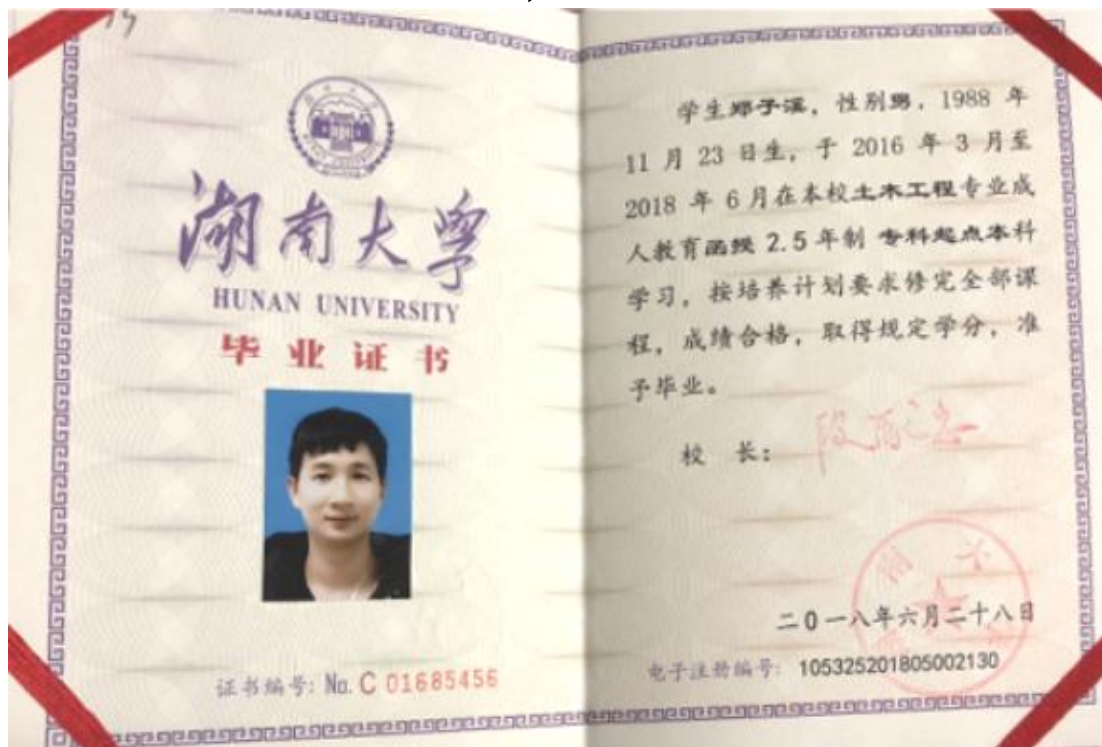 湖南大学
HUNAN UNIVERSITY
毕业证书
证书编号: No. C 01685456
学生郑子溪，性别男，1988 年
11 月 23 日生，于 2016 年 3 月至
2018 年 6 月在本校土木工程专业成
人教育函授 2.5 年制 专科起点本科
学习，按培养计划要求修完全部课
程，成绩合格，取得规定学分，准
予毕业。
校 长：
二0一八年六月二十八日
电子注册编号: 105325201805002130